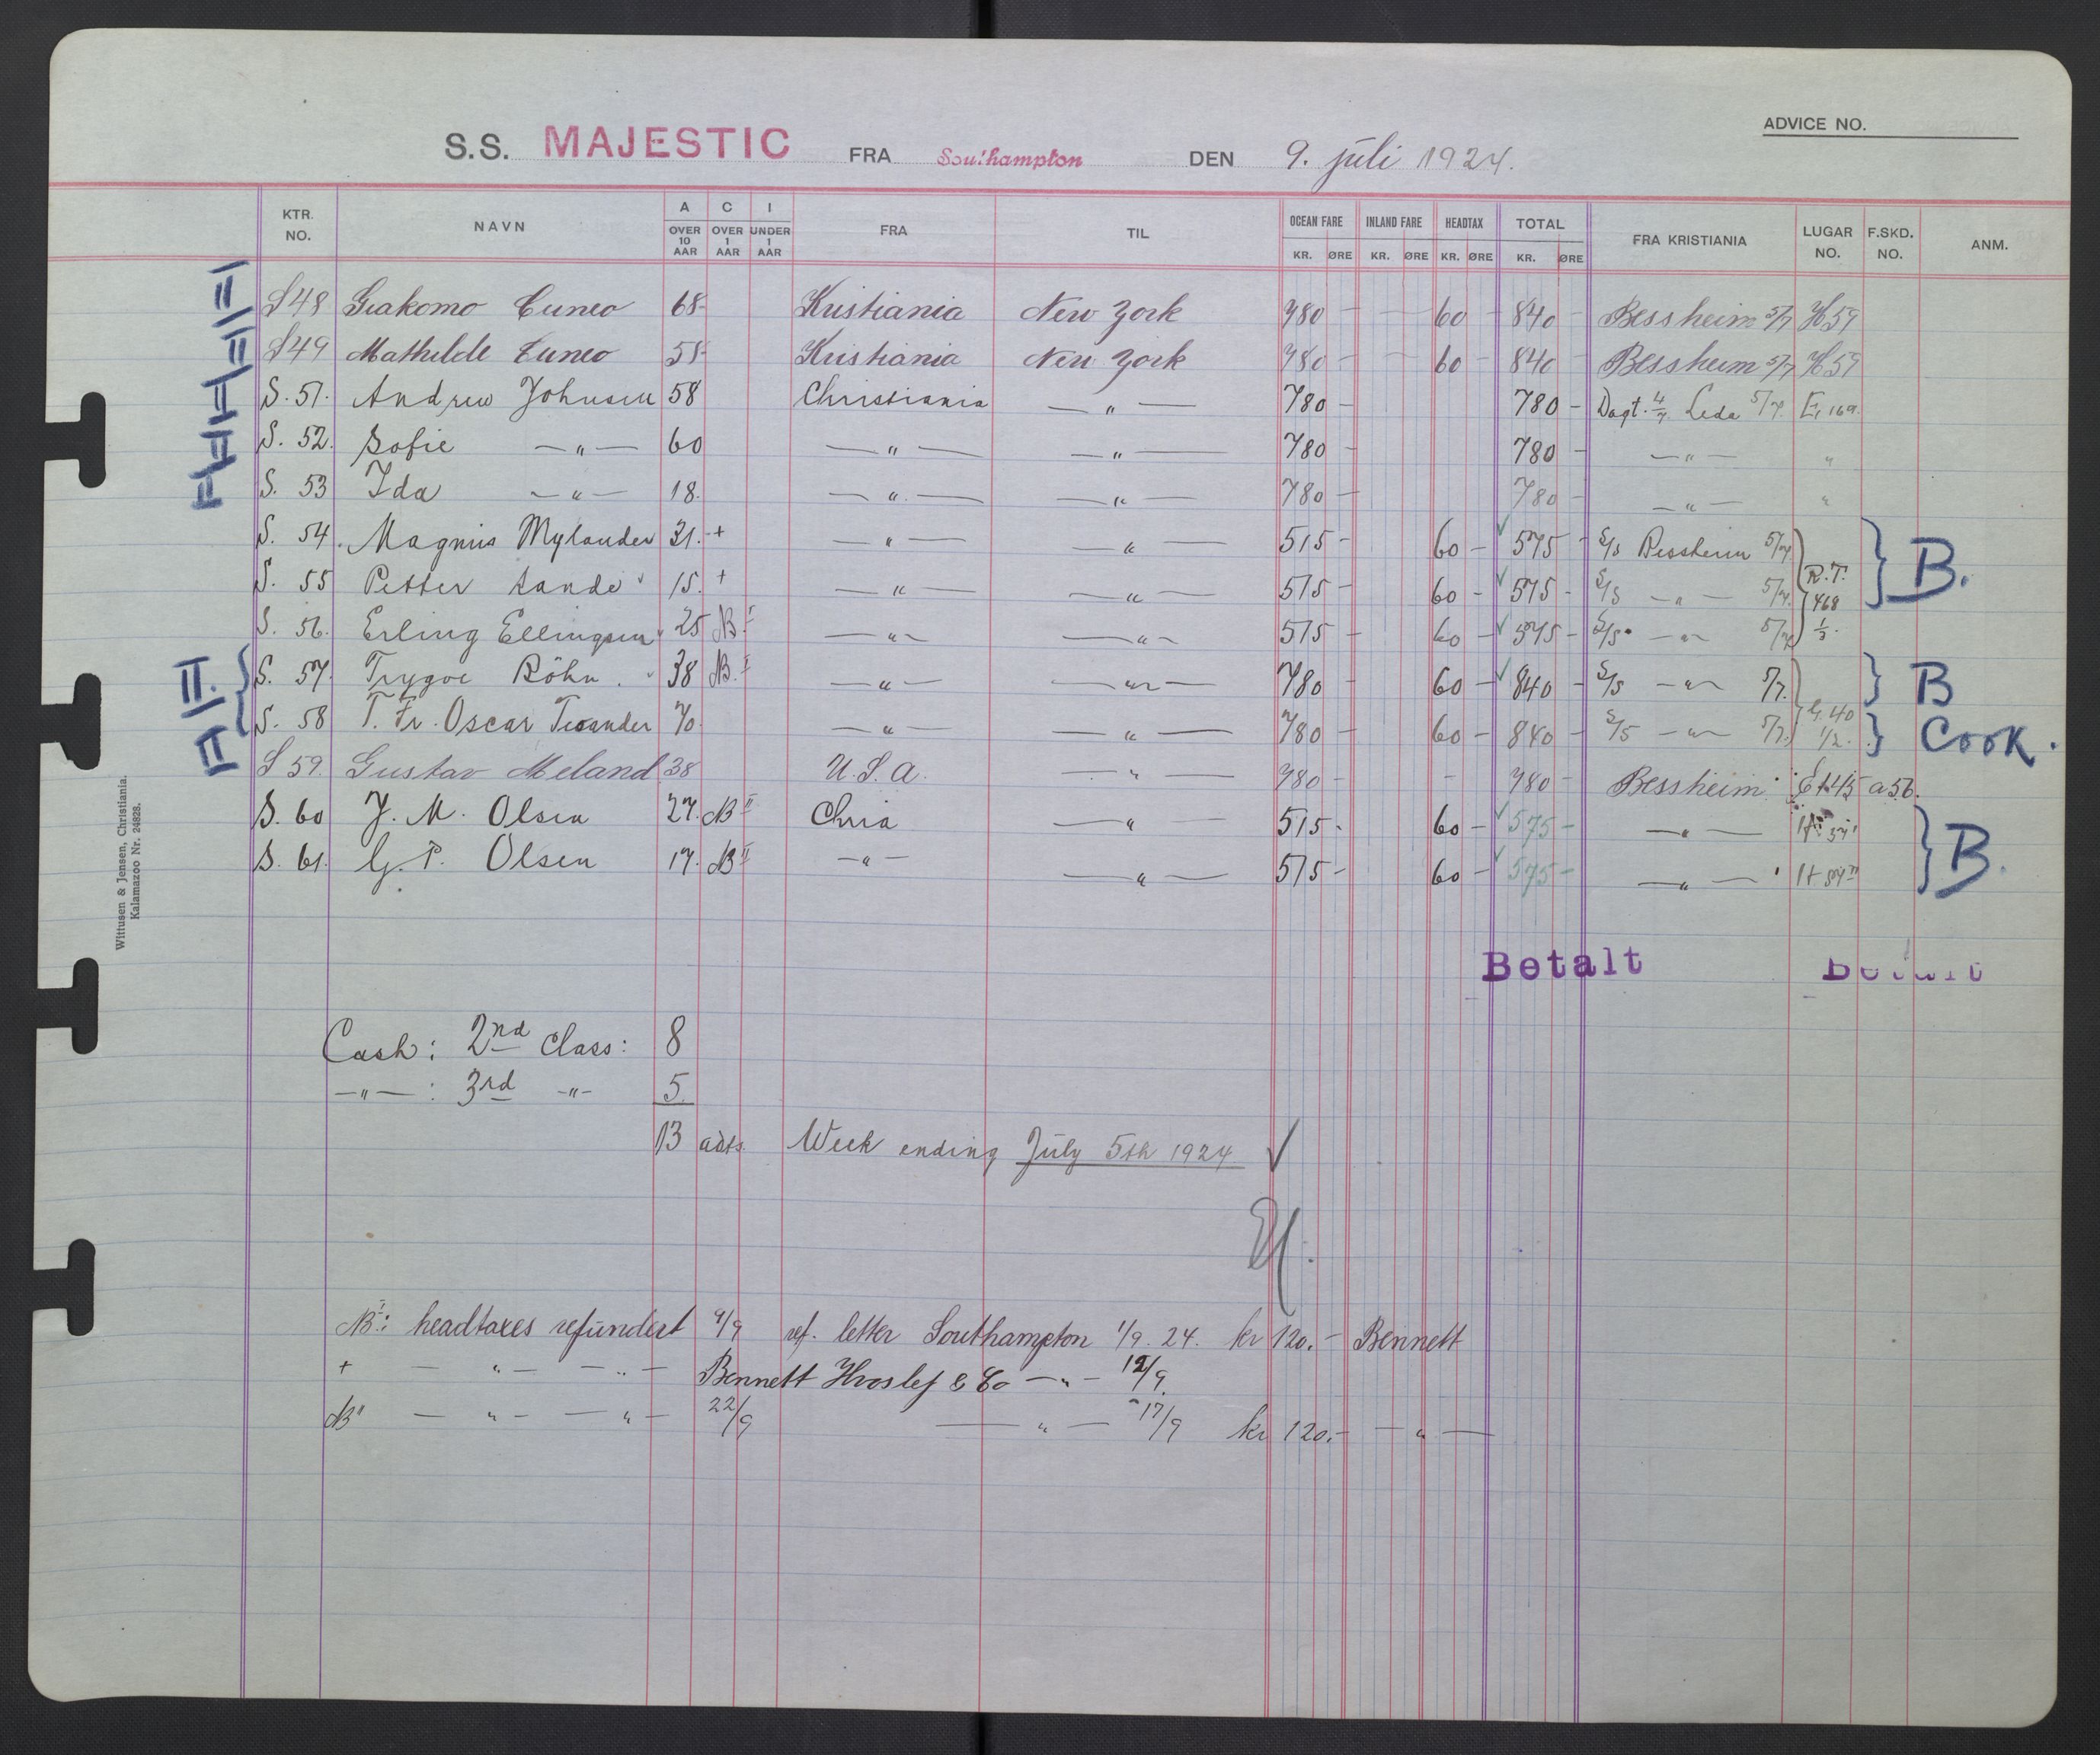 ADVICE NO.
S.S. MAJESTIC FRA Southampton DEN 9. juli 1924.
KTR. NO. NAVN A OVER 10 AAR C OVER 1 AAR I UNDER 1 AAR FRA TIL OCEAN FARE KR. ØRE INLAND FARE KR. ØRE HEADTAX KR. ØRE TOTAL KR. ØRE FRA KRISTIANIA LUGAR NO. F.SKD. NO. ANM.
S 48 Giakomo Cuneo 68 Kristiania New York 780 - 60 - 840 - Bessheim 5/7 H59
S 49 Mathilde Cuneo 55 Kristiania New York 780 - 60 - 840 - Bessheim 5/7 H59
S. 51. Andrew Johnsen 58 Christiania — " — 780 - 780 - Dagt. 4/7 Leda 5/7. E, 169.
S. 52. Sofie — " — 60 — " — — " — 780 - 780 - — " — "
S. 53 Ida — " — 18. — " — — " — 780 - 780 - — " — "
S. 54. Magnus Mylander 31. + — " — — " — 515 - 60 - 575 - S/S Bessheim 5/7 B.
S. 55 Petter Sande 15. + — " — — " — 515 - 60 - 575 - S/S — " — 5/7. R.T. 468
S. 56. Erling Ellingsen 25 NB I — " — — " — 515 - 60 - 575 - S/S — " — 5/7 1/3.
II. S. 57. Trygve Röhn. 38 NB. I — " — — " — 780 60 - 840 - S/S — " — 5/7. B
II S. 58 T. Fr. Oscar Tisander 70. — " — — " — 780 - 60 - 840 - S/S — " — 5/7. G. 40 1/2. Cook.
S 59. Gustav Meland 38 U.S.A. — " — 780 - - 780 - Bessheim E 145 a56.
S. 60 J. M. Olsen 27. NB II Chria — " — 515 - 60 - 575 - — " — B.
S. 61. G. P. Olsen 17. NB II — " — — " — 515 - 60 - 575 - — " —
Betalt Betalt
Wittusen & Jensen, Christiania.
Kalamazoo Nr. 24828.
Cash: 2nd class: 8
— " — : 3rd — " — 5.
13 adts. Week ending July 5th 1924
NB I: headtaxes refundert 4/9 ref. letter Southampton 1/9. 24. kr 120.- Bennett
+ — " — — " — Bennett Hvoslef & Co — " — 12/9.
NB II — " — — " — 22/9 — " — 17/9 kr 120.- — " —